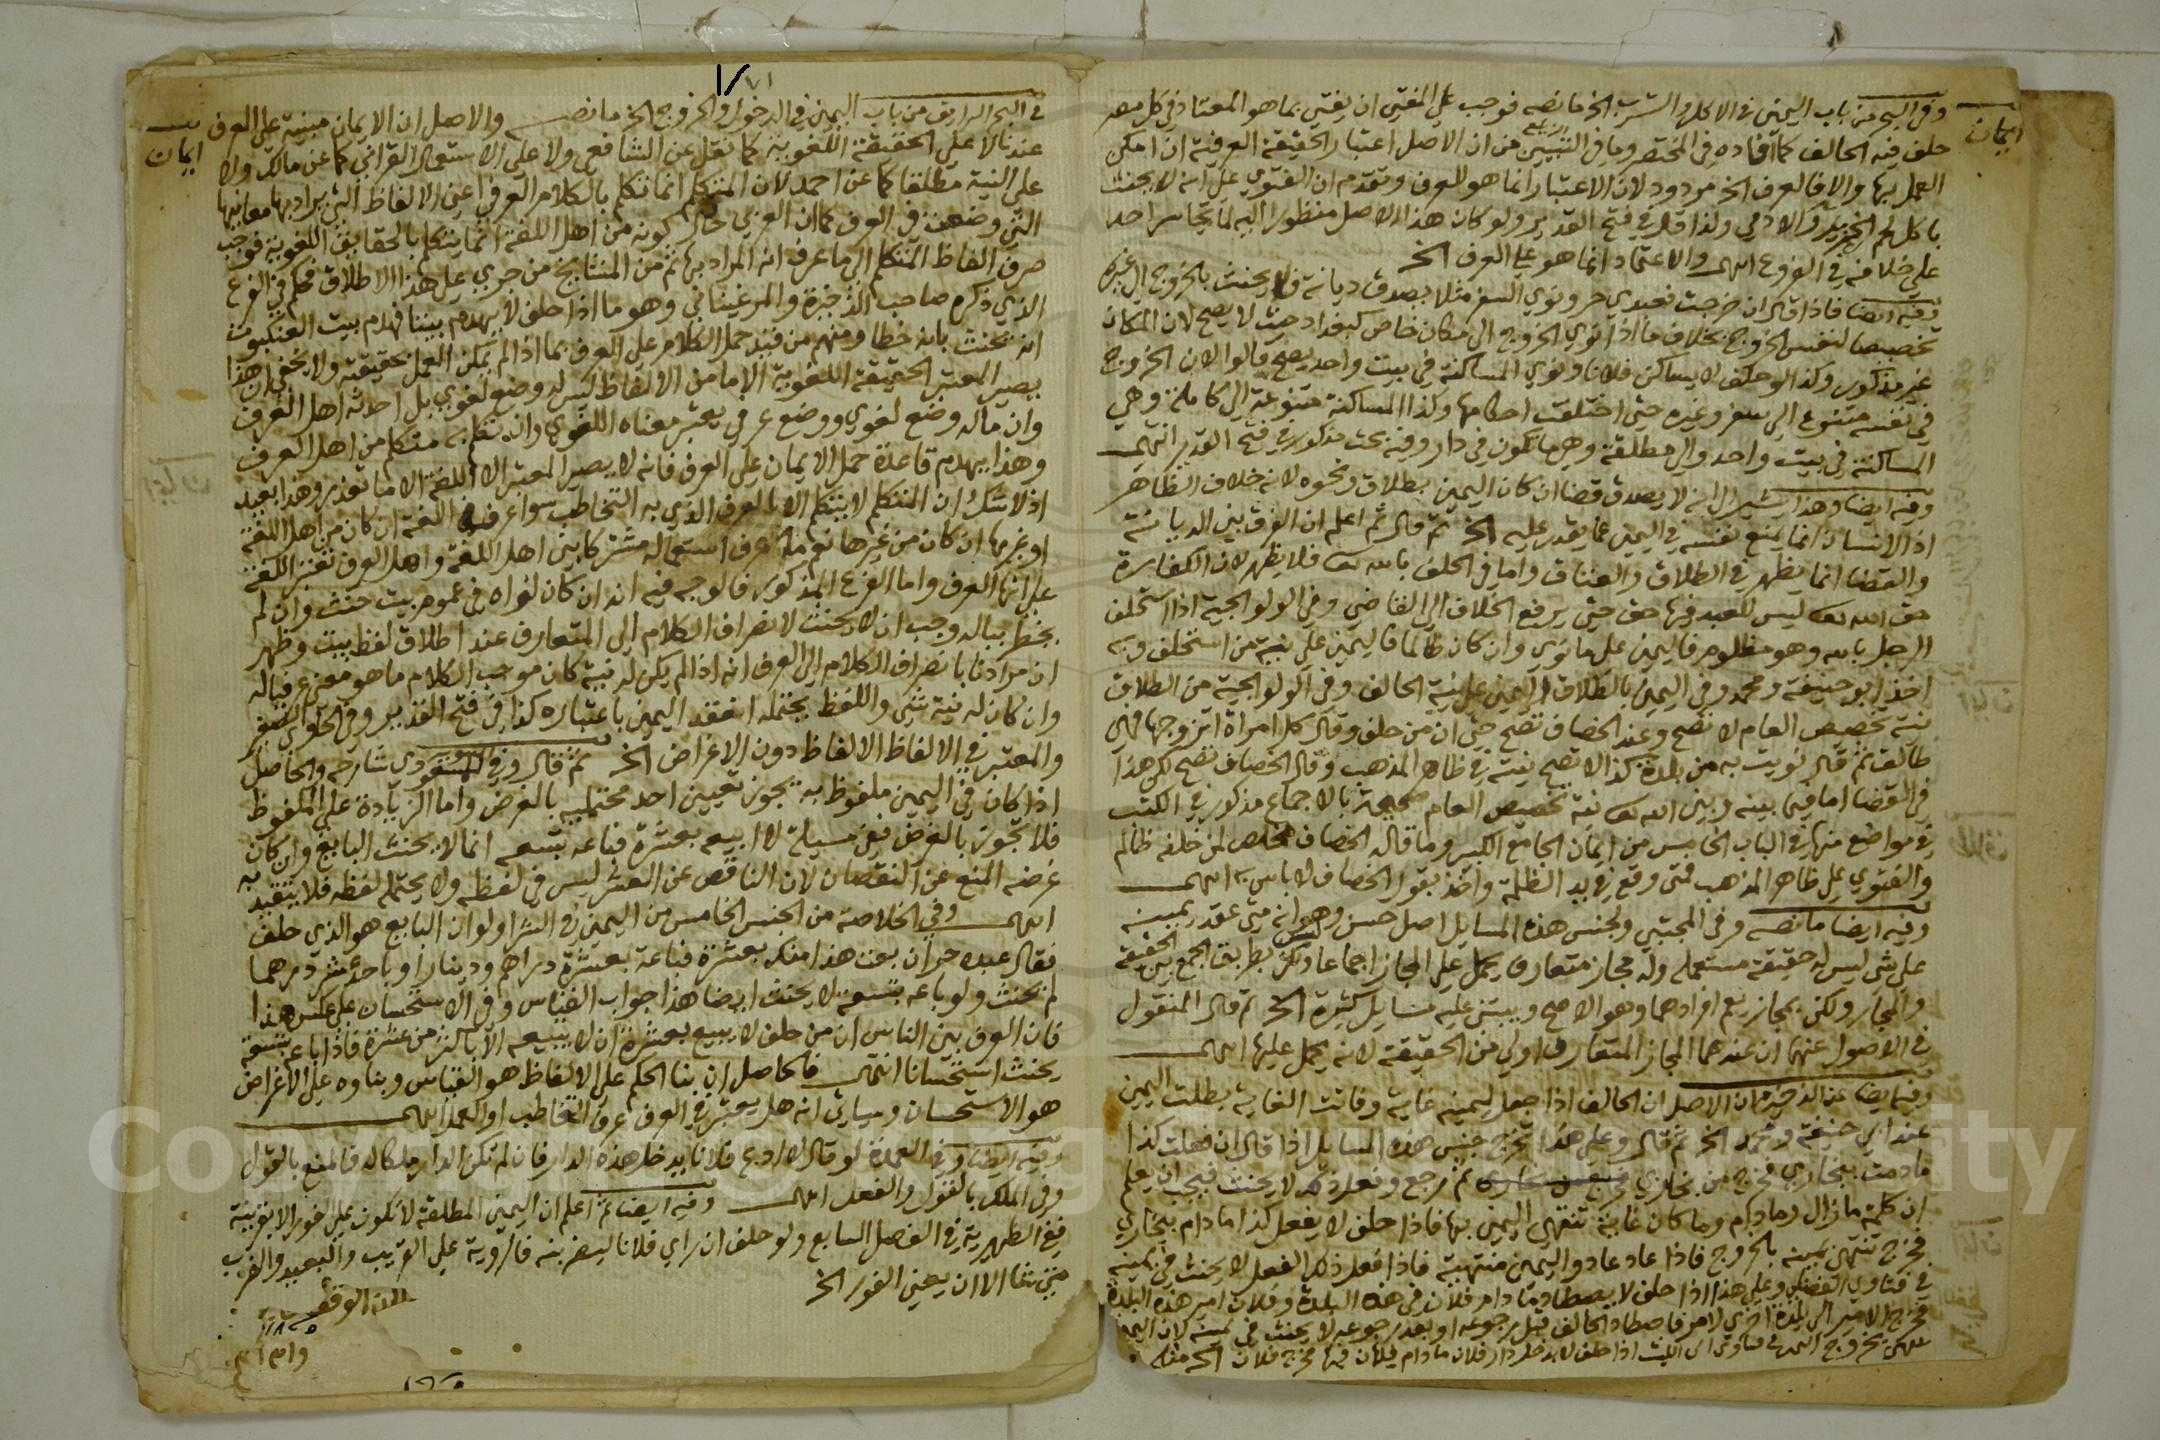 ايمان
وفي البحر من باب اليمين في الاكل والشرب الخ ما نصه فوجب على المفتي ان يفتي بما هو المعتاد في كل مصر
حلف فيه الحالف كما افاده في المختصر وما في التبيين من ان الاصل اعتبار الحقيقة العرفية ان امكن
العمل بها والا فالعرف الخ مردود لان الاعتبار انما هو للعرف وتقدم ان الفتوى على انه لا يحنث
باكل لحم الخنزير والادمي ولذا قال في فتح القدير ولو كان هذا الاصل منظورا اليه لما تجاسر احد
على خلافه في الفروع انتهى والاعتماد انما هو على العرف الخ
وفيه ايضا فاذا قال ان خرجت فعبدي حر ونوى السفر مثلا يصدق ديانة فلا يحنث بالخروج الى غيره
تخصيصا لنفس الخروج بخلاف ما اذا نوى الخروج الى مكان خاص كبغداد حيث لا يصح لان المكان
غير مذكور وكذا لو حلف لا يساكن فلانا ونوى المساكنة في بيت واحد يصح قالوا لان الخروج
في نفسه متنوع الى سفر وغيره حتى اختلفت احكامها وكذا المساكنة متنوعة الى كاملة وهي
المساكنة في بيت واحد والى مطلقة وهي ما تكون في دار وفيه بحث مذكور في فتح القدير انتهى
وفيه ايضا وهذا يشير الى انه لا يصدق قضا ان كان اليمين بطلاق ونحوه لانه خلاف الظاهر
اذ الانسان انما يمنع نفسه في اليمين عما يقدر عليه الخ ثم قال ثم اعلم ان الفرق بين الديانة
والقضا انما يظهر في الطلاق والعتاق واما في الحلف بالله تعـ فلا يظهر لان الكفارة
حق الله تعـ ليس للعبد فيها حق حتى يرفع الحالف الى القاضي وفي الولوالجية اذا استحلف
الرجل بالله وهو مظلوم فاليمين على ما نوى وان كان ظالما فاليمين على نية من استحلف وبه
اخذ ابو حنيفة ومحمد وفي اليمين بالطلاق اليمين على نية الحالف وفي الولوالجية من الطلاق
نية تخصيص العام لا تصح وعند الخصاف تصح حتى ان من حلف وقال كل امراة اتزوجها فهي
طالق ثم قال نويت به من بلدة كذا لا تصح نيته في ظاهر المذهب وقال الخصاف تصح لكن هذا
في القضا اما فيما بينه وبين الله تعـ نية تخصيص العام صحيحة بالاجماع مذكور في الكتب
في مواضع منها في الباب الخامس من ايمان الجامع الكبير وما قاله الخصاف مخلص لمن حلفه ظالم
والفتوى على ظاهر المذهب فمتى وقع في يد الظلمة واخذ بقول الخصاف لا باس به انتهى
وفيه ايضا ما نصه وفي المجتبى ولجنس هذه المسايل اصل حسن وهو انه متى عقد يمينه
على شي ليس له حقيقة مستعملة وله مجاز متعارف يحمل على المجاز اجماعا ولكن ليس بطريق الجمع بين الحقيقة
والمجاز ولكن بمجاز يعم افرادهما وهو الاصح ويبتنى عليه مسايل كثيرة الخ ثم قال المنقول
في الاصول عنهما ان عندهما المجاز المتعارف اولى من الحقيقة لانه يحمل عليها انتهى
وفيه ايضا عن الذخيرة ان الاصل ان الحالف اذا جعل ليمينه غاية وفاتت الغاية بطلت اليمين
عند ابي حنيفة ومحمد الخ ثم قال وعلى هذا تخرج جنس هذه المسايل اذا قال ان فعلت كذا
ما دمت ببخارى فخرج من بخارى ثم رجع وفعل ذلك لا يحنث فيجب ان يعلم
ان كلمة ما زال وما دام وما كان غاية تنتهي اليمين بها فاذا حلف لا يفعل كذا ما دام ببخارى
فخرج تنتهي يمينه بالخروج فاذا عاد عاد واليمين منتهية فاذا فعل ذلك الفعل لا يحنث في يمينه
في فتاوى الفضلي وعلى هذا اذا حلف لا يصطاد ما دام فلان في هذه البلدة وفلان امير هذه البلدة
فخرج الامير الى بلدة اخرى لامر فاصطاد الحالف قبل رجوعه او بعد رجوعه لا يحنث في يمينه لان اليمين
تنتهي بخروج الامير في فتاوى ابي الليث اذا حلف لا يدخل دار فلان ما دام فلان فيها فخرج فلان الخ منه
٧١
ايمان
في البحر الرايق من باب اليمين في الدخول والخروج الخ ما نصه والاصل ان الايمان مبنية على العرف
عندنا لا على الحقيقة اللغوية كما نقل عن الشافعي ولا على الاستعمال القراني كما عن مالك ولا
على النية مطلقا كما عن احمد لان المتكلم انما تكلم بالكلام العرفي اعني الالفاظ التي يراد بها معانيها
التي وضعت في العرف كما ان العربي حال كونه من اهل اللغة انما يتكلم بالحقايق اللغوية فوجب
صرف الفاظ المتكلم الى ما عرف انه المراد بها ثم من المشايخ من جرى على هذا الاطلاق فحكم في الفرع
الذي ذكره صاحب الذخيرة والمرغيناني وهو ما اذا حلف لا يهدم بيتا فهدم بيت العنكبوت
انه يحنث بانه خطا ومنهم من قيد حمل الكلام على العرف بما اذا لم يمكن العمل بحقيقته ولا يخفى ان هذا
يصير المعتبر الحقيقة اللغوية الا ما من الالفاظ ليس له وضع لغوي بل احدثه اهل العرف
وان ما له وضع لغوي ووضع عرفي يعتبر معناه اللغوي وان تكلم به متكلم من اهل العرف
وهذا يهدم قاعدة حمل الايمان على العرف فانه لا يصير المعتبر الا اللغة الا ما تعذر وهذا بعيد
اذ لا شك ان المتكلم لا يتكلم الا بالعرف الذي به التخاطب سواء عرف اللغة ان كان من اهل اللغة
او غيرها ان كان من غيرها نعم ما عرف استعماله مشتركا بين اهل اللغة واهل العرف تعتبر اللغة
على انها العرف واما الفرع المذكور فالوجه فيه انه ان كان نواه في عموم بيت حنث وان لم
يخطر بباله وجب ان لا يحنث لانصراف الكلام الى المتعارف عند اطلاق لفظ بيت وظهر
ان مرادنا بانصراف الكلام الى العرف انه اذا لم يكن له نية كان موجب الكلام ما هو معنى عرفيا له
وان كان له نية شي واللفظ يحتمله انعقد اليمين باعتباره كذا في فتح القدير وفي الحاوي الصغير
والمعتبر في الالفاظ الالفاظ دون الاغراض الخ ثم قال وفي شارحه والحاصل
اذا كان في اليمين ملفوظ به تجوز تعيين احد محتمليه بالغرض واما الزيادة على الملفوظ
فلا تجوز بالغرض ففي مسيلة لا ابيعه بعشرة فباعه بتسعه انما لا يحنث البايع وان كان
غرضه المنع عن النقصان لان الناقص عن العشر ليس في لفظه ولا يحتمله لفظه فلا يتقيد به
انتهى وفي الخلاصة من الجنس الخامس من اليمين في الشرا ولو ان البايع هو الذي حلف
فقال عبده حر ان بعت هذا منك بعشرة فباعه بعشرة دراهم ودينار او باحد عشر درهما
لم يحنث ولو باعه بتسعة لا يحنث ايضا هذا جواب القياس وفي الاستحسان على عكس هذا
فان العرف بين الناس ان من حلف لا يبيع بعشرة ان لا يبيعه الا باكثر من عشرة فاذا باع بتسعة
يحنث استحسانا انتهى فالحاصل ان بنا الحكم على الالفاظ هو القياس وبناوه على الاغراض
هو الاستحسان وسياتي انه هل يعتبر في العرف عرف التخاطب او العمل انتهى
وفيه ايضا وفي العمدة لو قال لا ادع فلانا يدخل هذه الدار فان لم تكن الدار ملكا له فالمنع بالقول
وفي الملك بالقول والفعل انتهى وفيه ايضا ثم اعلم ان اليمين المطلقة لا تكون على الفور الا بقرينة
ففي الظهيرية في الفصل السابع ولو حلف ان راى فلانا ليضربنه فالروية على القريب والبعيد والضرب
متى شا الا ان يعني الفور الخ